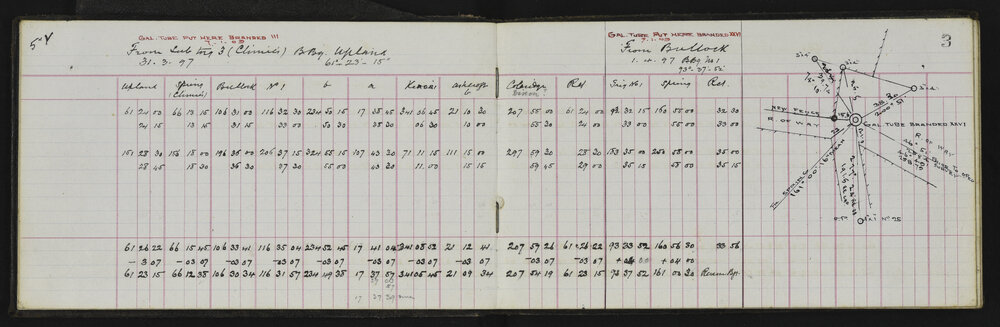 5
GAL. TUBE PUT HERE BRANDED III
7.1.03
From Sub trig 3 (Climie's) Brg. Upland
31.3.97 61°-23'-15"
Upland Spring Climie's Bullock No 1 b a Karori Coleridge Ref.
61 24 00 66 13 15 106 31 00 116 32 30 234 50 15 17 38 45 341 06 45 21 10 30 207 55 00 61 24 00
24 15 13 15 31 15 33 00 50 30 38 30 06 30 10 00 55 20 24 00
151 28 30 156 18 00 196 36 00 206 37 15 324 55 15 107 43 20 71 11 15 111 15 00 297 59 20 28 20
28 45 18 30 36 30 37 30 55 00 43 20 11 00 15 15 59 45 29 00
61 26 22 66 15 45 106 33 41 116 35 04 234 52 45 17 41 04 341 08 52 21 12 41 207 57 26 61 26 22
-3 07 -03 07 -03 07 -03 07 -03 07 -03 07 -03 07 -03 07 -03 07 -03 07
61 23 15 66 12 38 106 30 34 116 31 57 234 49 38 17 37 57 341 05 45 21 09 34 207 54 19 61 23 15
GAL. TUBE PUT HERE BRANDED XXVI
7.1.03
3
From Bullock
1.4.97 Brg No 1
93°-37'-52"
Trig No 1 Spring Ref.
93 32 15 160 55 00 32 30
33 00 55 00 33 00
183 35 00 250 55 00 35 00
35 15 55 00 35 15
93 33 52 160 56 30 33 56
+04 00 +04 00
93 37 52 161 00 30
NEW FENCE
R. OF WAY
GAL TUBE BRANDED XXVI
R. OF WAY
TO SPRING
161-00-16 mean